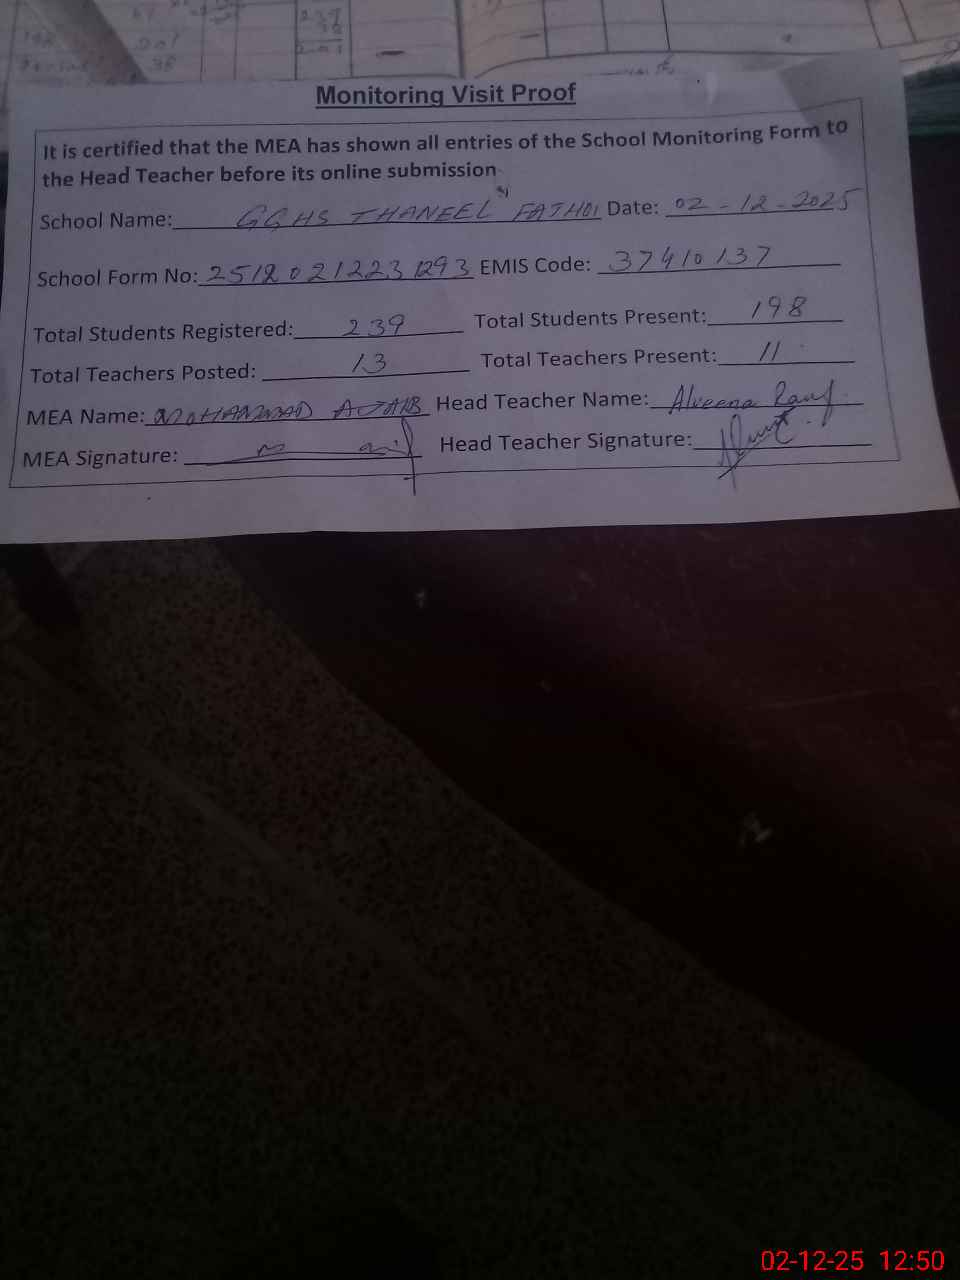 239
Monitoring Visit Proof
It is certified that the MEA has shown all entries of the School Monitoring Form to
the Head Teacher before its online submission
School Name: GGHS THANEEL FATHOI Date: 02-12-2025
School Form No: 25120212231293 EMIS Code: 37410137
Total Students Registered: 239 Total Students Present: 198
Total Teachers Posted: 13 Total Teachers Present: 11
MEA Name: MOHAMMAD AJAIB Head Teacher Name: Alveena Rauf
MEA Signature: Head Teacher Signature:
02-12-25 12:50